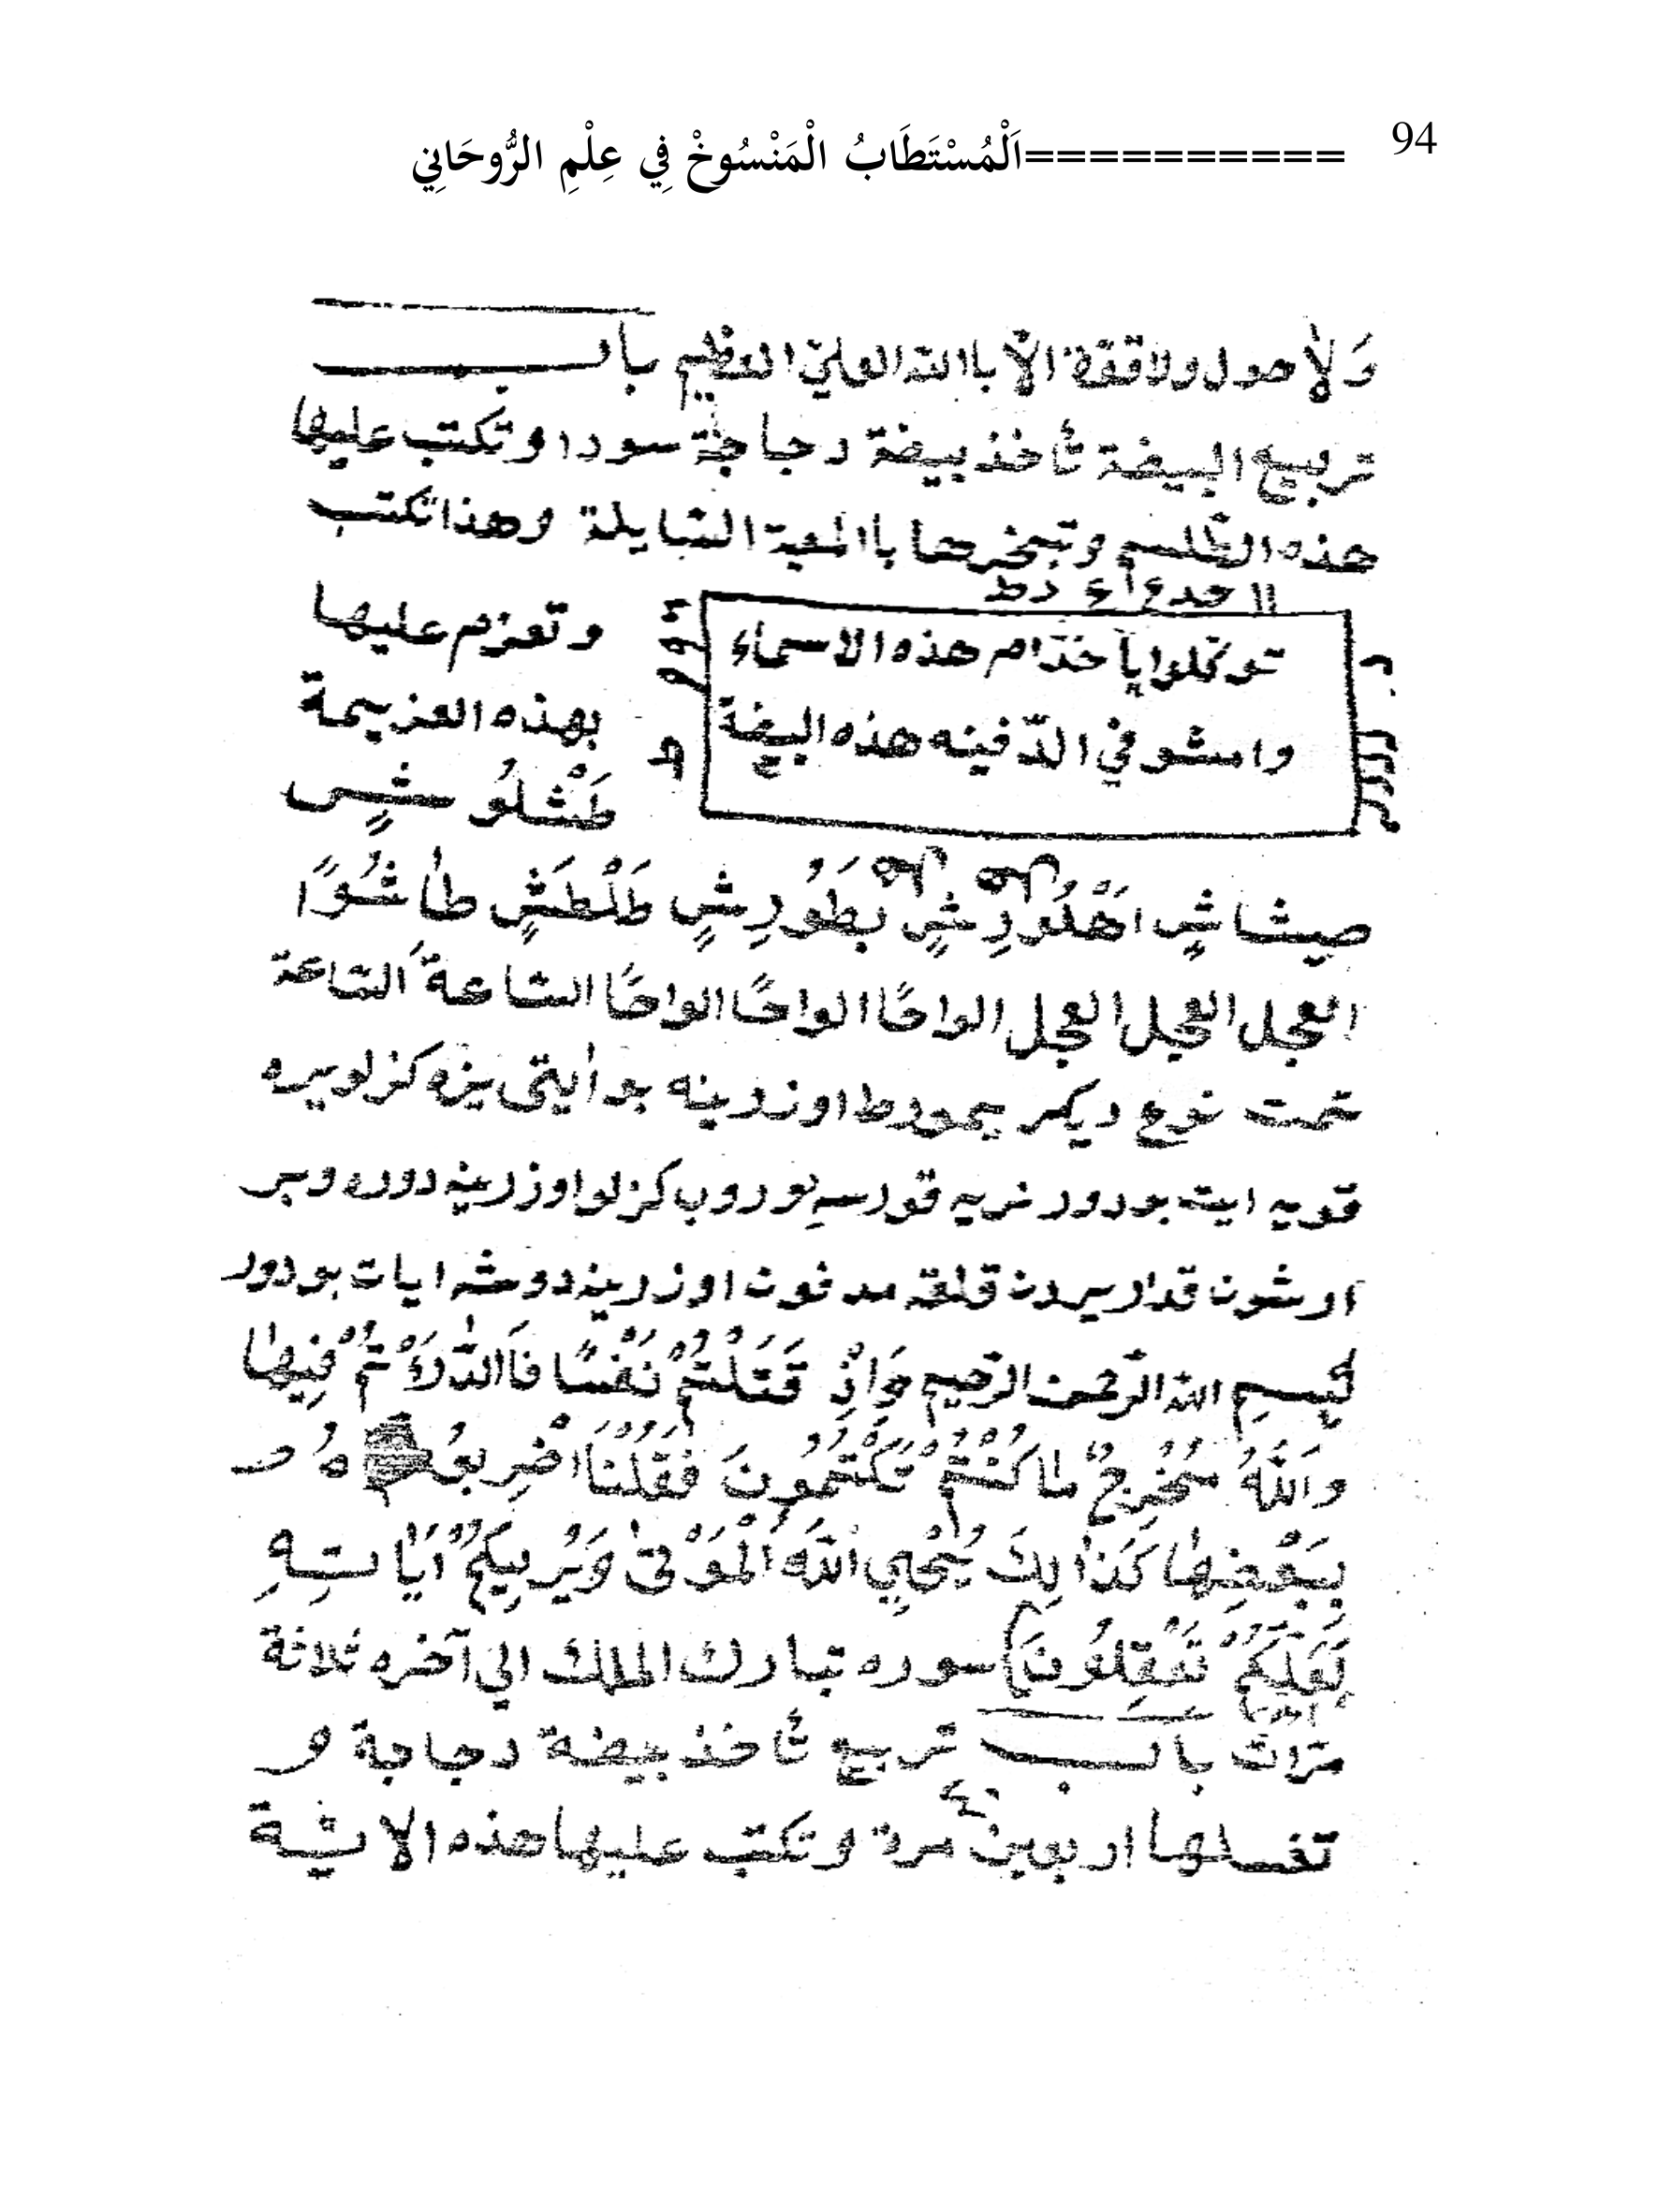 94
==========اَلْمُسْتَطَابُ الْمَنْسُوخْ فِي عِلْمِ الرُّوحَانِي
وَلاحول ولاقوّة الّا باالله العليّ العظيم باب
تربيع البيضة تأخذ بيضة دجاجة سودا وتكتب عليها
هذه الطلسم وتبخرها باالمعية السّايلة وهذا تكتب
توكلوا يا خدّام هذه الاسماء
وامشو في الدّفينه هذه البيضة
وتعزم عليها
بهذه العزيمة
طَشْلُو شٍ
صيشاشٍ اَهْلُورِشٍ بَطَوُرِشٍ طَلْطَشٍ طاشُوًا
العجل العجل العجل الواحًا الواحًا الواحًا السّاعة السّاعة
تمت نوع ديكر يمورط اوزرينه بو ايتى يزه كزلويره
قويه ايت بودور نريه قورسه يوروب كزلو اوزرينه دوره وبر
ارشون قدار يردن قلقه مدفون اوزرينه دوشه ايات بودور
بِسمِ الله الرّحمن الرّحيم وَاِذْ قَتَلْتُمْ نَفْسًا فَاالدّٰرَءْتُمْ فِيهٰا
وَاللّٰهُ مُخْرِجٌ مٰا كُنْتُمْ تَكْتُمُونَ فَقُلْنَا اضْرِبُو هُ و
بِبَعْضِهٰا كَذٰالِكَ يُحْيِي اللّٰهَ الْمَوْتىٰ وَيُرِيكُمْ اٰيٰاتِهِ
لَعَلَكُمْ تَعْقِلُونَ) سوره تبارك الملك الي آخره ثلاثة
مرّات باب تربيع تأخذ بيضة دجاجة و
تغسلها اربعين مرة وتكتب عليها هذه الاشية